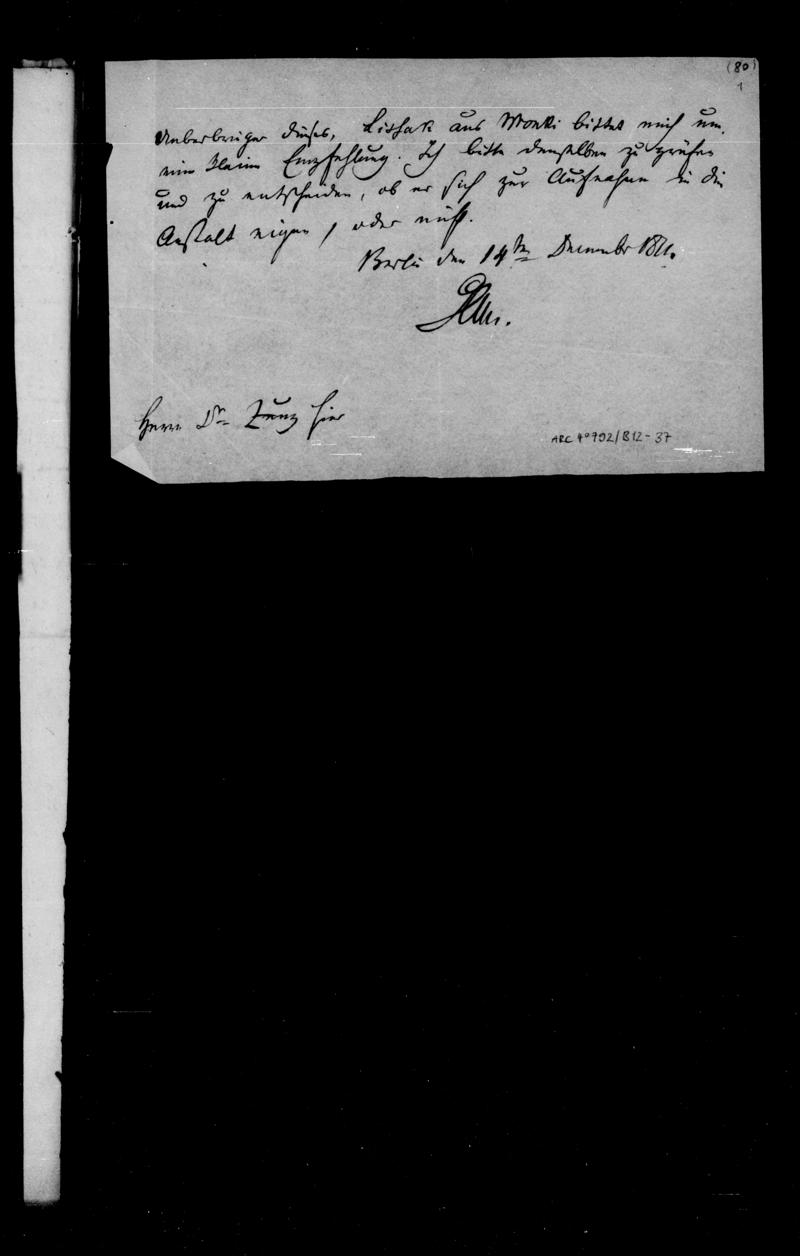 (80)
1
Ueberbringer dieses, Litthak aus Wonki bittet mich um
eine kleine Empfehlung. Ich bitte denselben zu prüfen
und zu entscheiden, ob er sich zur Aufnahme in die
Anstalt eigne, oder nicht.
Berlin den 14ten December
Herrn Dr Zunz hier
ARC 4° 792/B12-37